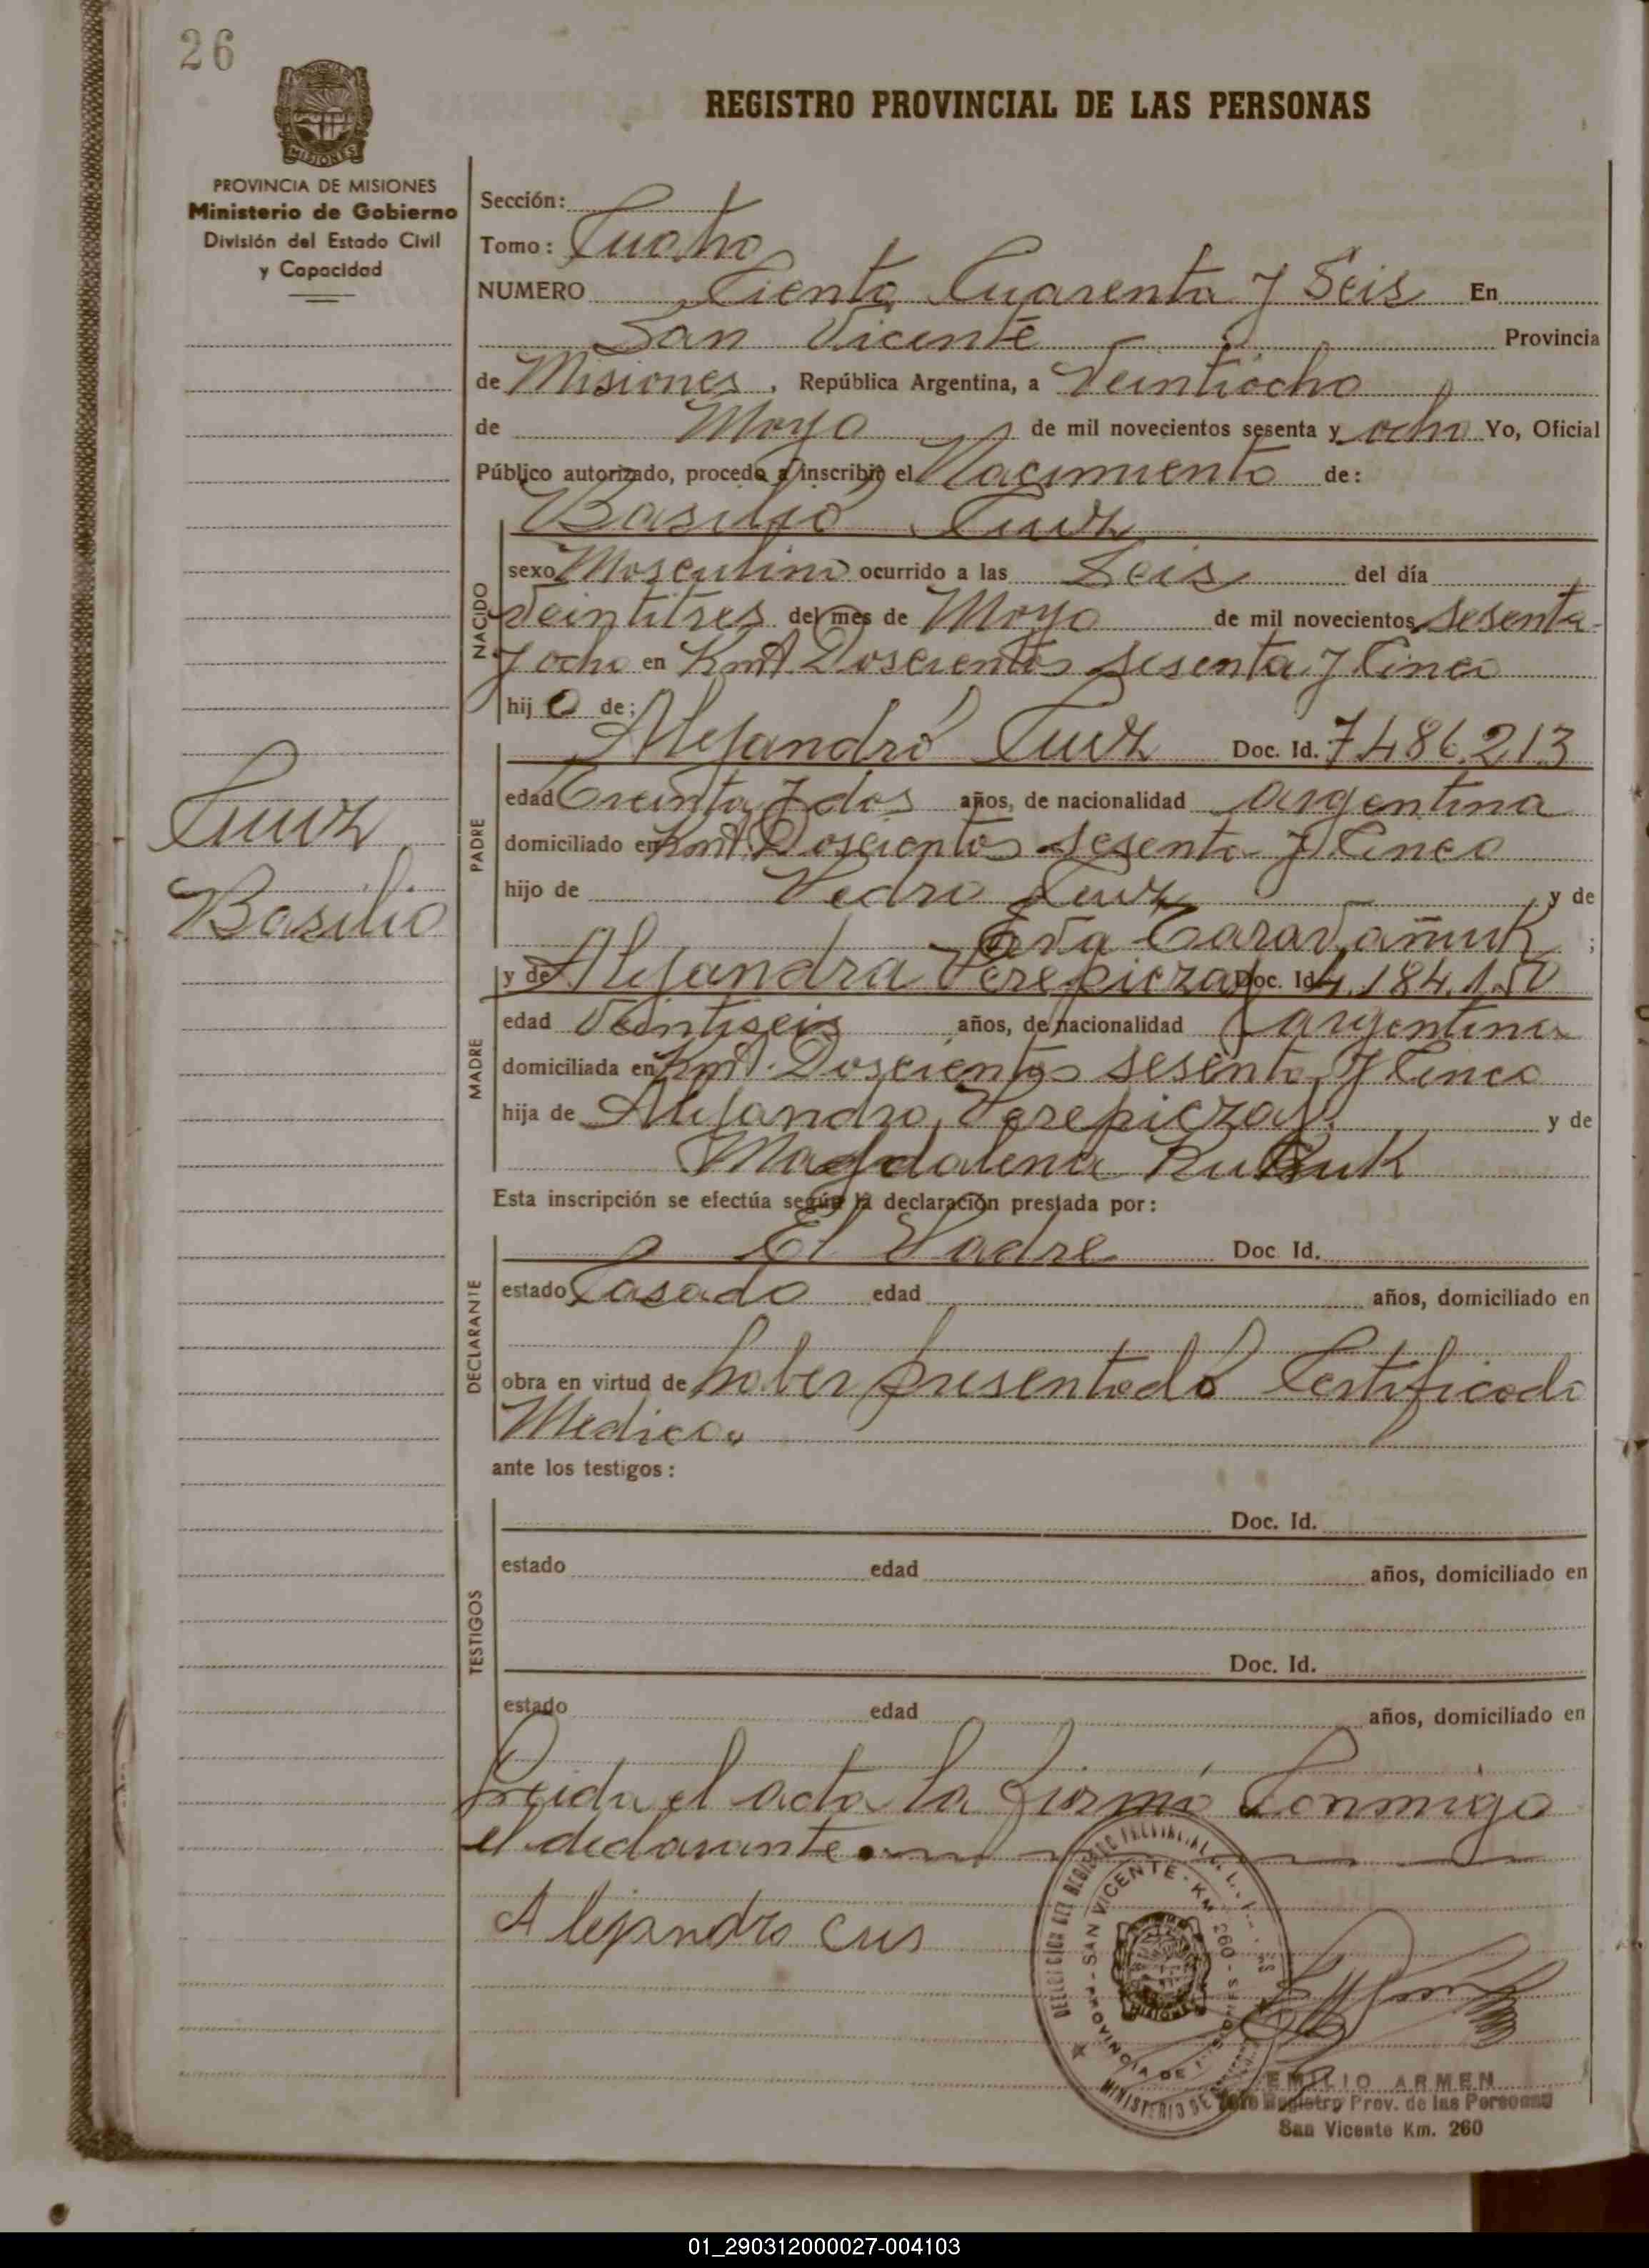 26
REGISTRO PROVINCIAL DE LAS PERSONAS
PROVINCIA DE MISIONES
Ministerio de Gobierno
División del Estado Civil
y Capacidad
Sección:
Tomo: Cuatro
NUMERO Ciento Cuarenta y Seis En
San Vicente Provincia
de Misiones, República Argentina, a Veintiocho
de Mayo de mil novecientos sesenta y ocho Yo, Oficial
Público autorizado, procedo a inscribir el Nacimiento de:
Basilio
NACIDO
sexo Masculino ocurrido a las Seis del día
Veintitres del mes de Mayo de mil novecientos sesenta
y ocho en Kmt Doscientos sesenta y Cinco
hijo de:
PADRE
Alejandro Doc. Id. 7486.213
edad Treinta y dos años, de nacionalidad argentina
domiciliado en Kmt. Doscientos sesenta y Cinco
hijo de Pedro y de
Eva ;
MADRE
y de Alejandra Verepiczay Doc. Id. 4.184.150
edad Veintiseis años, de nacionalidad argentina
domiciliada en Kmt. Doscientos sesenta y Cinco
hija de Alejandro Verepiczay y de
Magdalena
Esta inscripción se efectúa según la declaración prestada por:
DECLARANTE
El Padre Doc. Id.
estado Casado edad años, domiciliado en
obra en virtud de haber presentado Certificado
Medico.
ante los testigos:
TESTIGOS
Doc. Id.
estado edad años, domiciliado en
Doc. Id.
estado edad años, domiciliado en
Leida el acta la firmó Conmigo
el declarante.
Alejandro Cus
Basilio
SAN VICENTE - KM 260 -
PROVINCIA DE MISIONES
EMILIO ARMEN
Jefe Registro Prov. de las Personas
San Vicente Km. 260
01_290312000027-004103